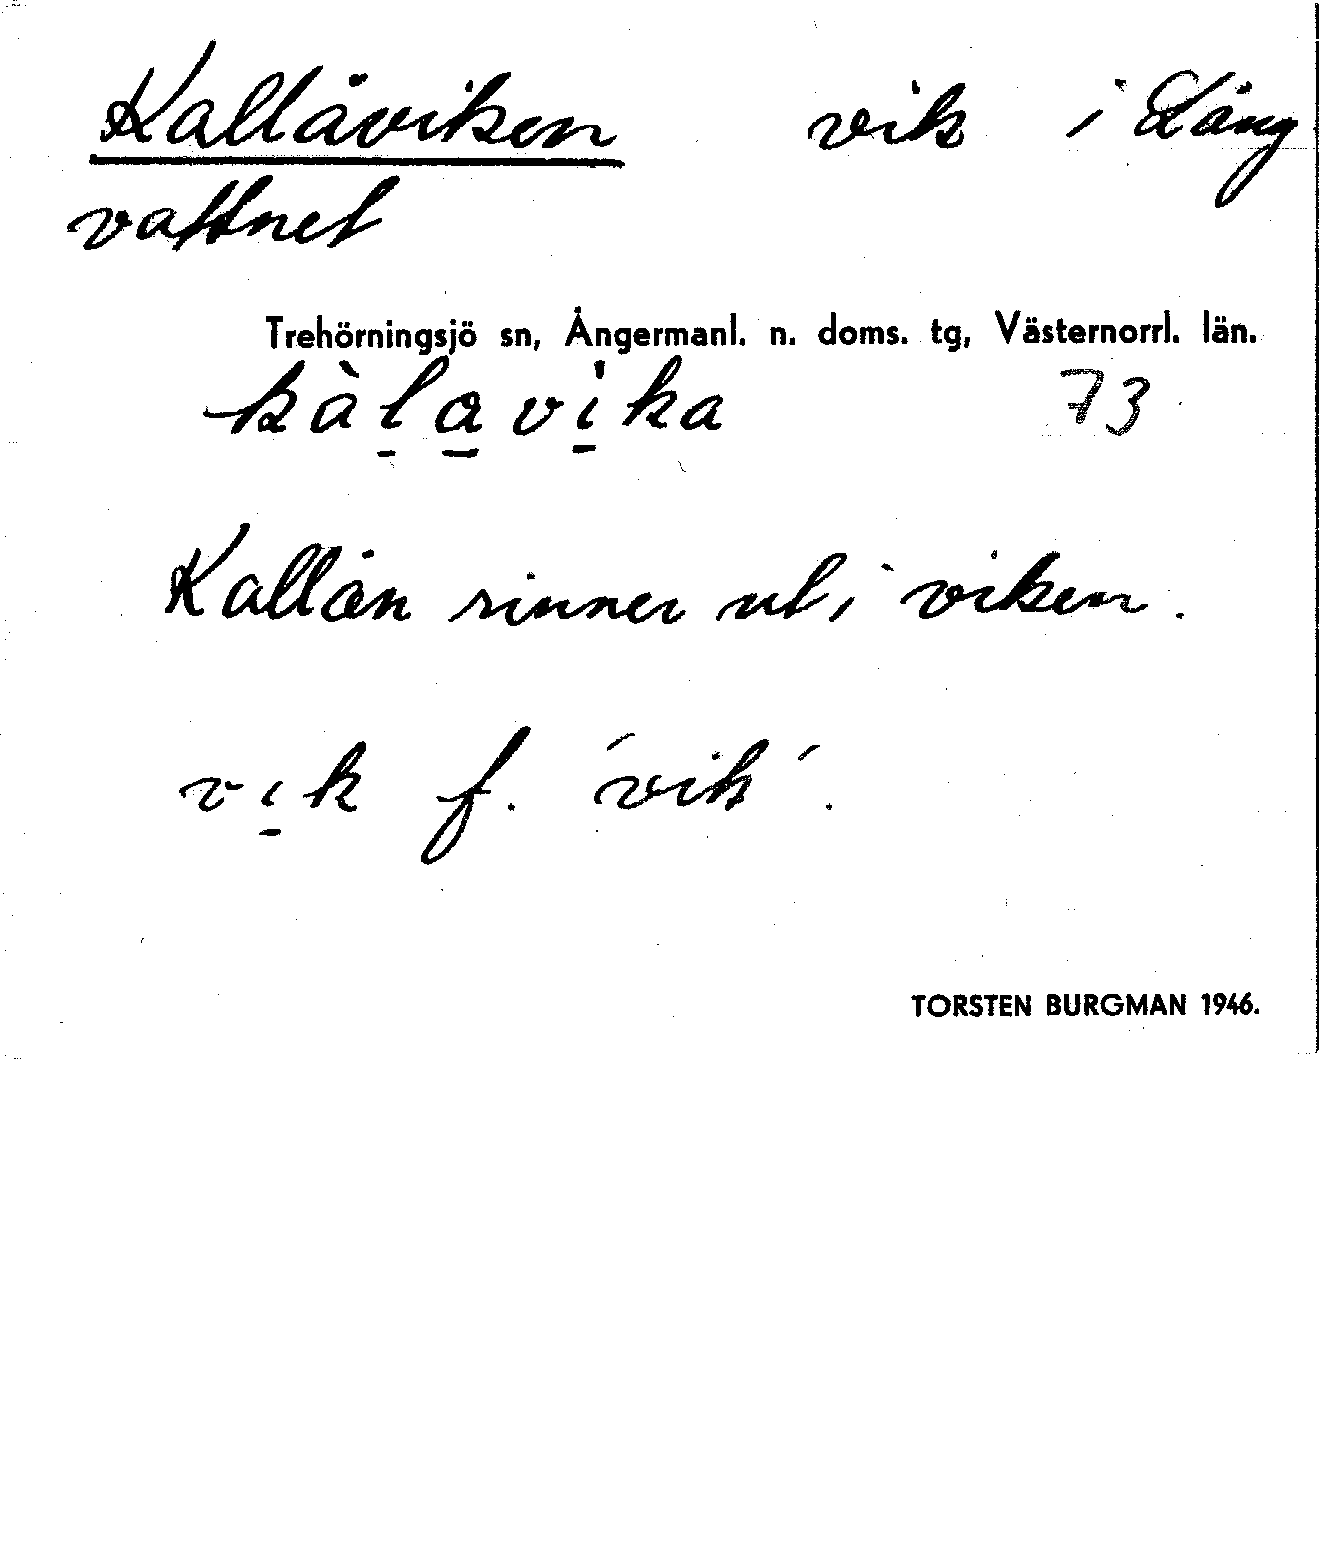 Kallåviken vik i Lång
vattnet
Trehörningsjö sn, Ångermanl. n. doms. tg, Västernorrl. län.
kàl̠a̠vi̠̍ka 73
Kallån rinner ut i viken.
vı̠k f. 'vik'.
TORSTEN BURGMAN 1946.